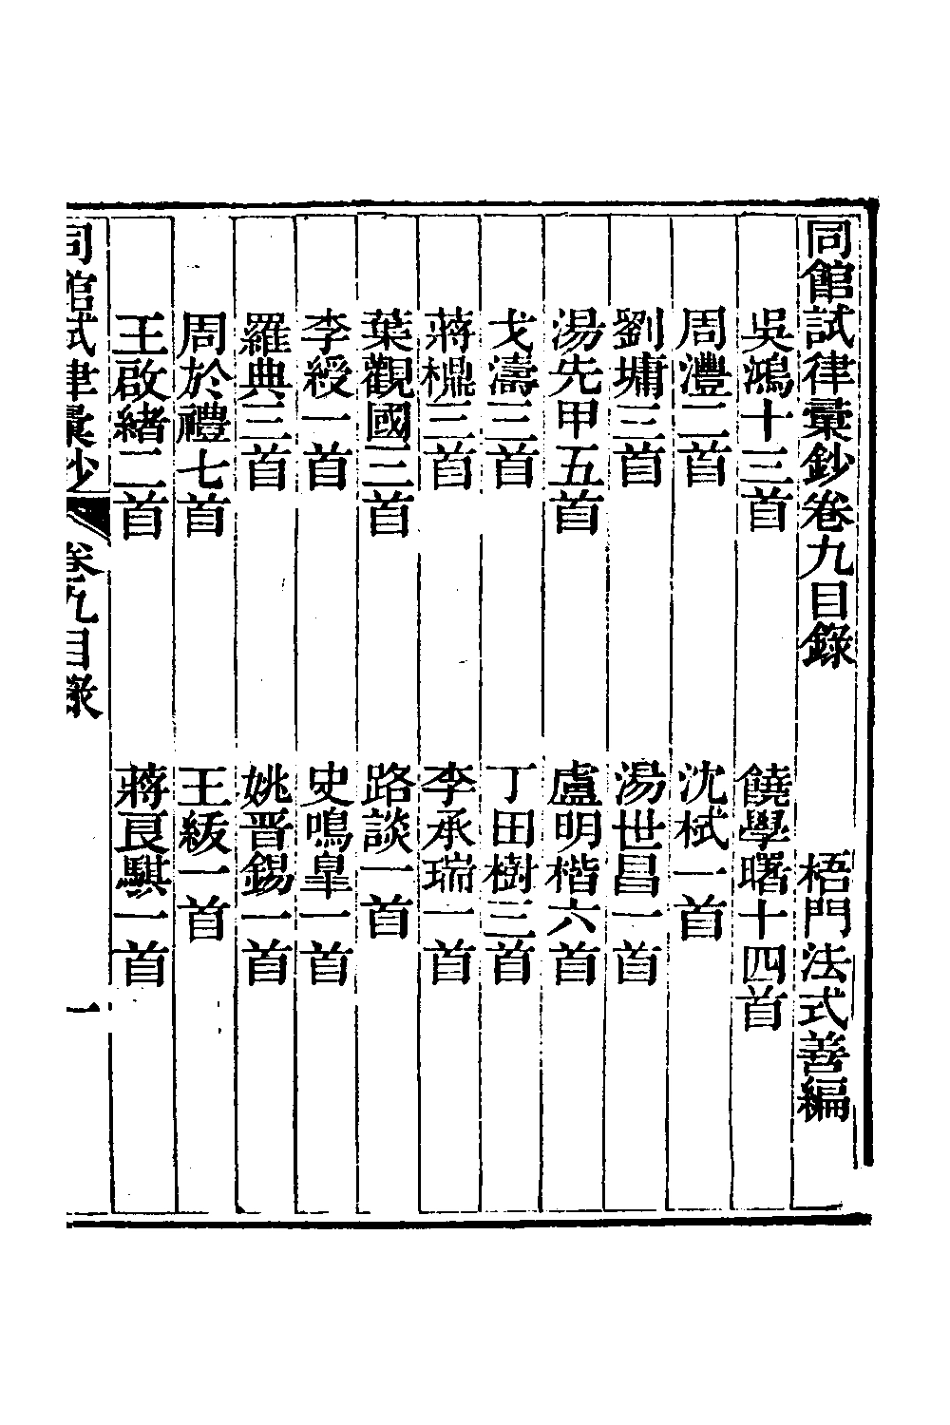 同館試律彙鈔卷九目錄　梧門法式善編
吳鴻十三首　饒學曙十四首
周灃二首　沈栻一首
劉墉三首　湯世昌一首
湯先甲五首　盧明楷六首
戈濤三首　丁田樹三首
蔣檙三首　李承瑞一首
葉觀國三首　路談一首
李綬一首　史鳴臯一首
羅典三首　姚晋錫一首
周於禮七首　王紱一首
王啟緒二首　蔣良騏一首
同館試律彙鈔　卷九目錄　一